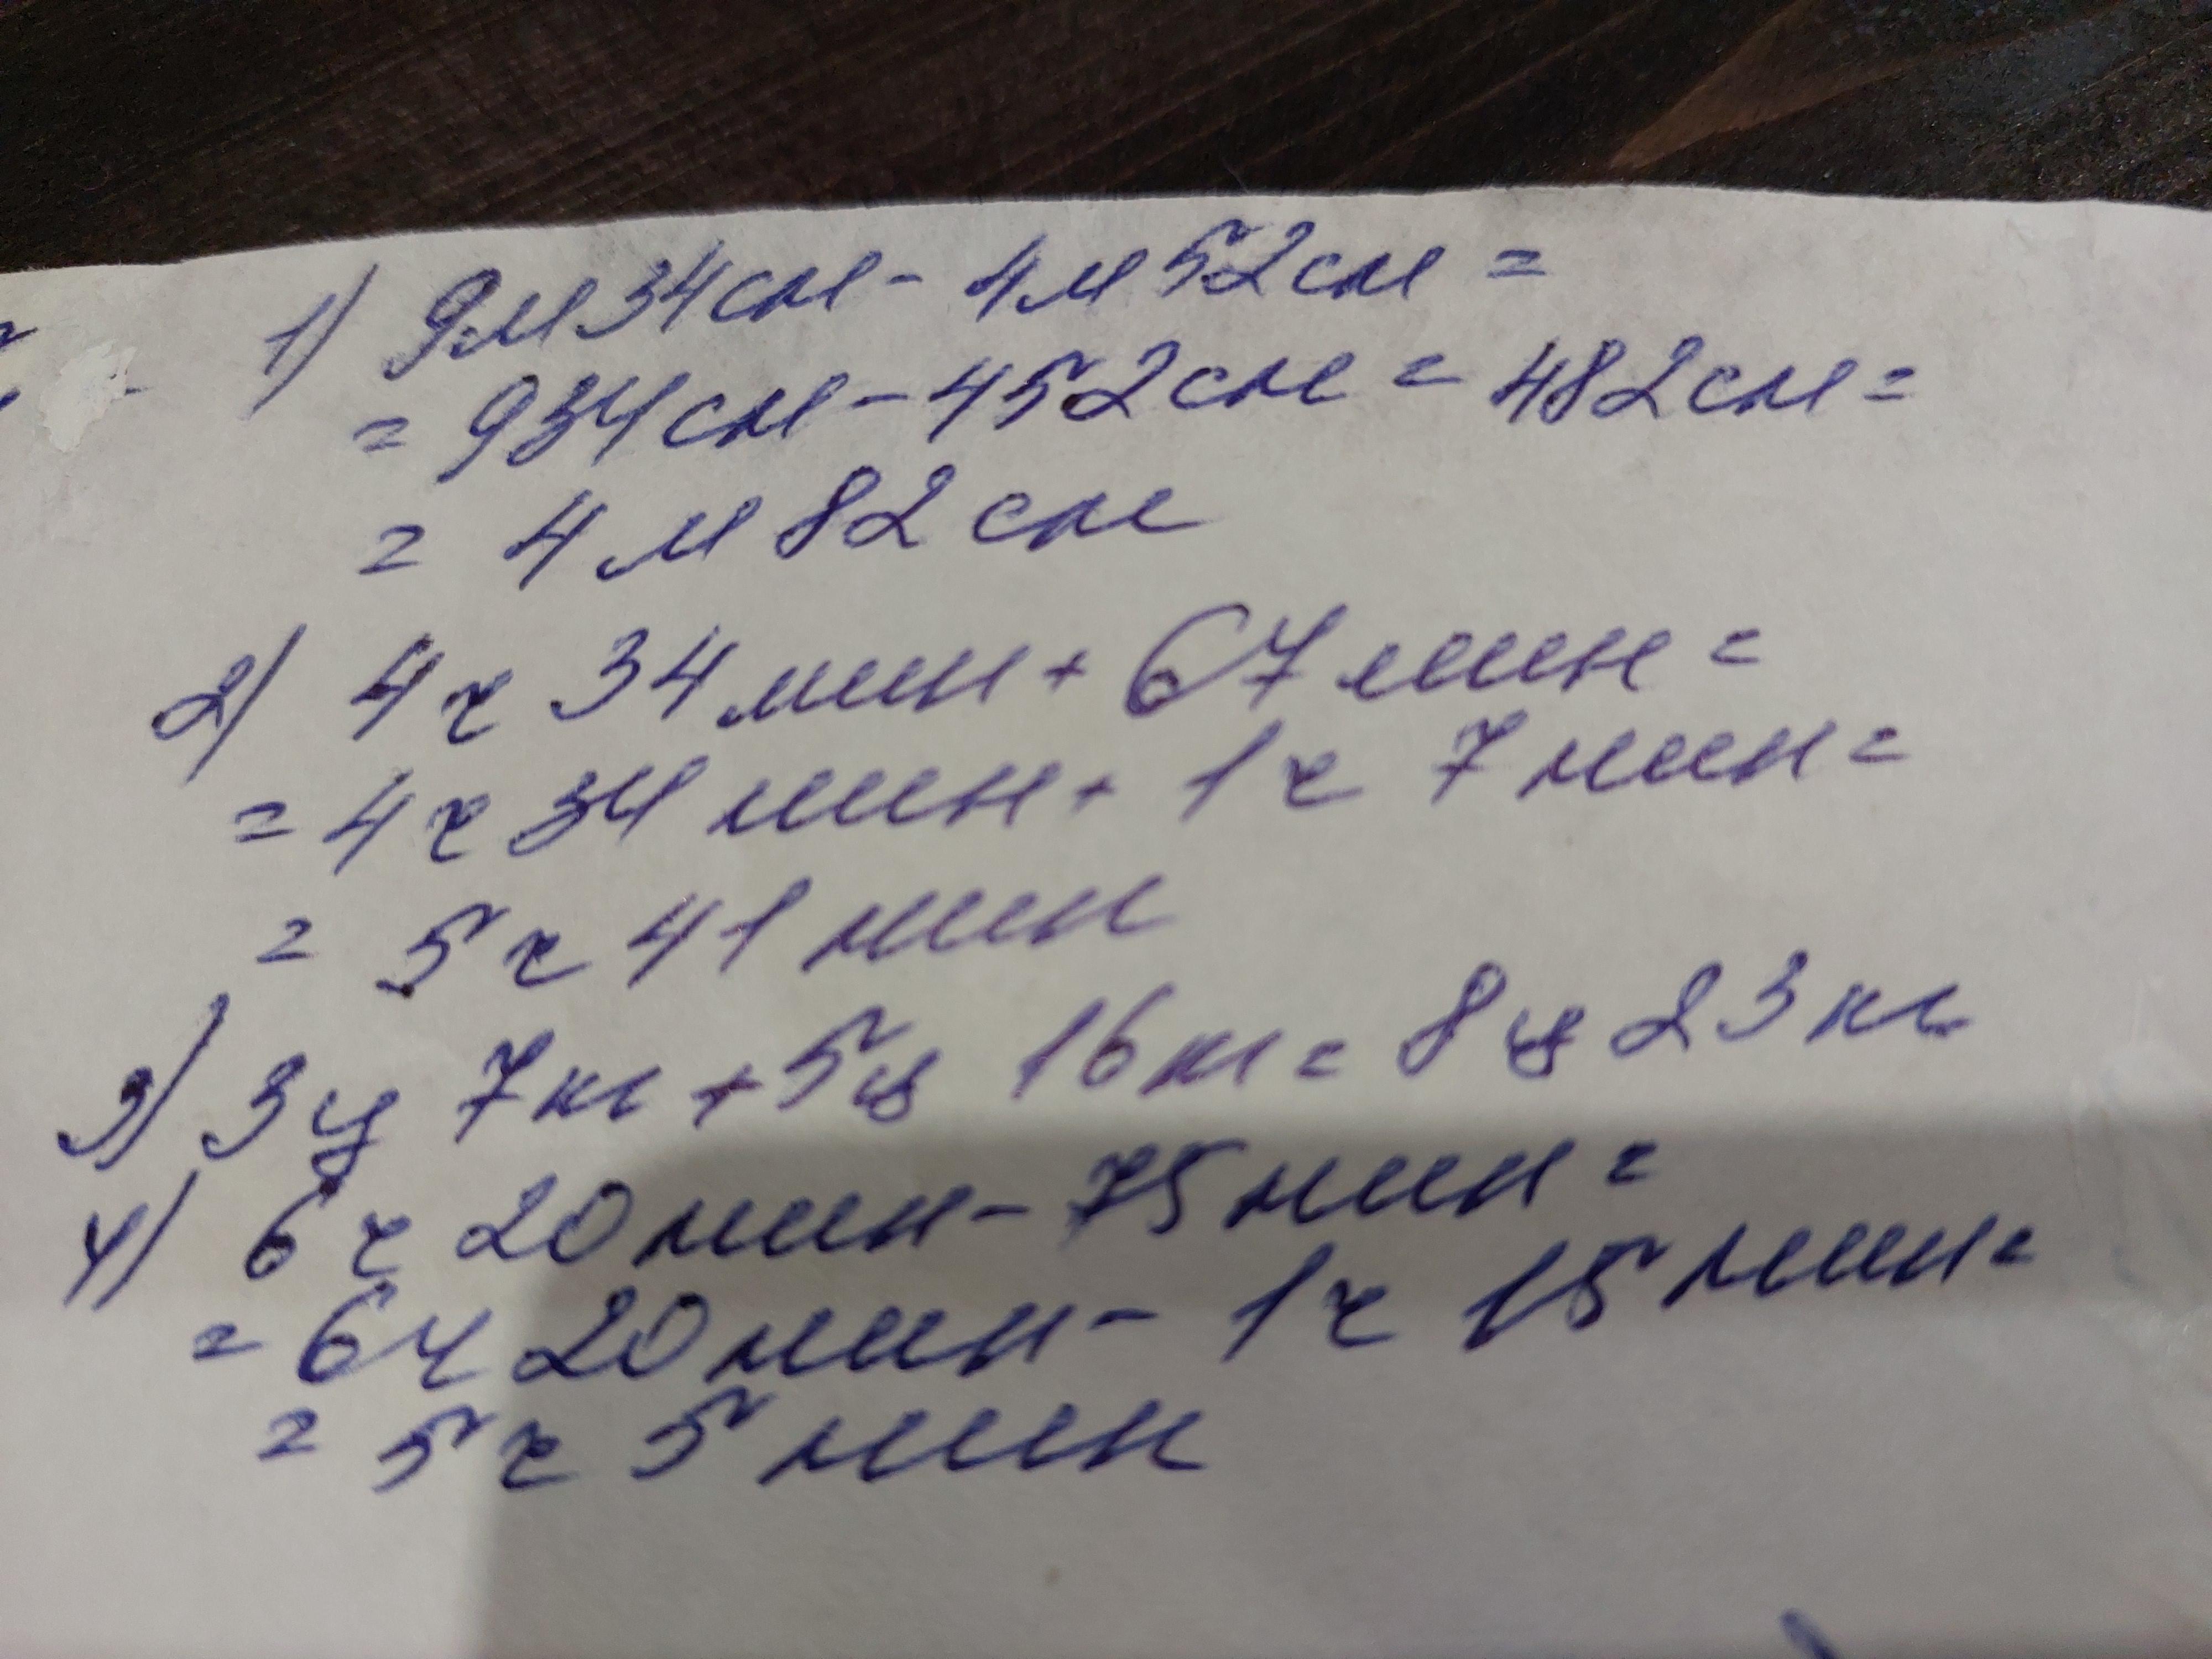 1) 9м 34см - 4м 52см =
= 934см - 452см = 482см =
= 4 м 82 см
2) 4 ч 34 мин + 67 мин =
= 4 ч 34 мин + 1 ч 7 мин =
= 5 ч 41 мин
3) 3 ц 7 кг + 5 ц 16 кг = 8 ц 23 кг
4) 6 ч 20 мин - 75 мин =
= 6 ч 20 мин - 1 ч 15 мин =
= 5 ч 5 мин